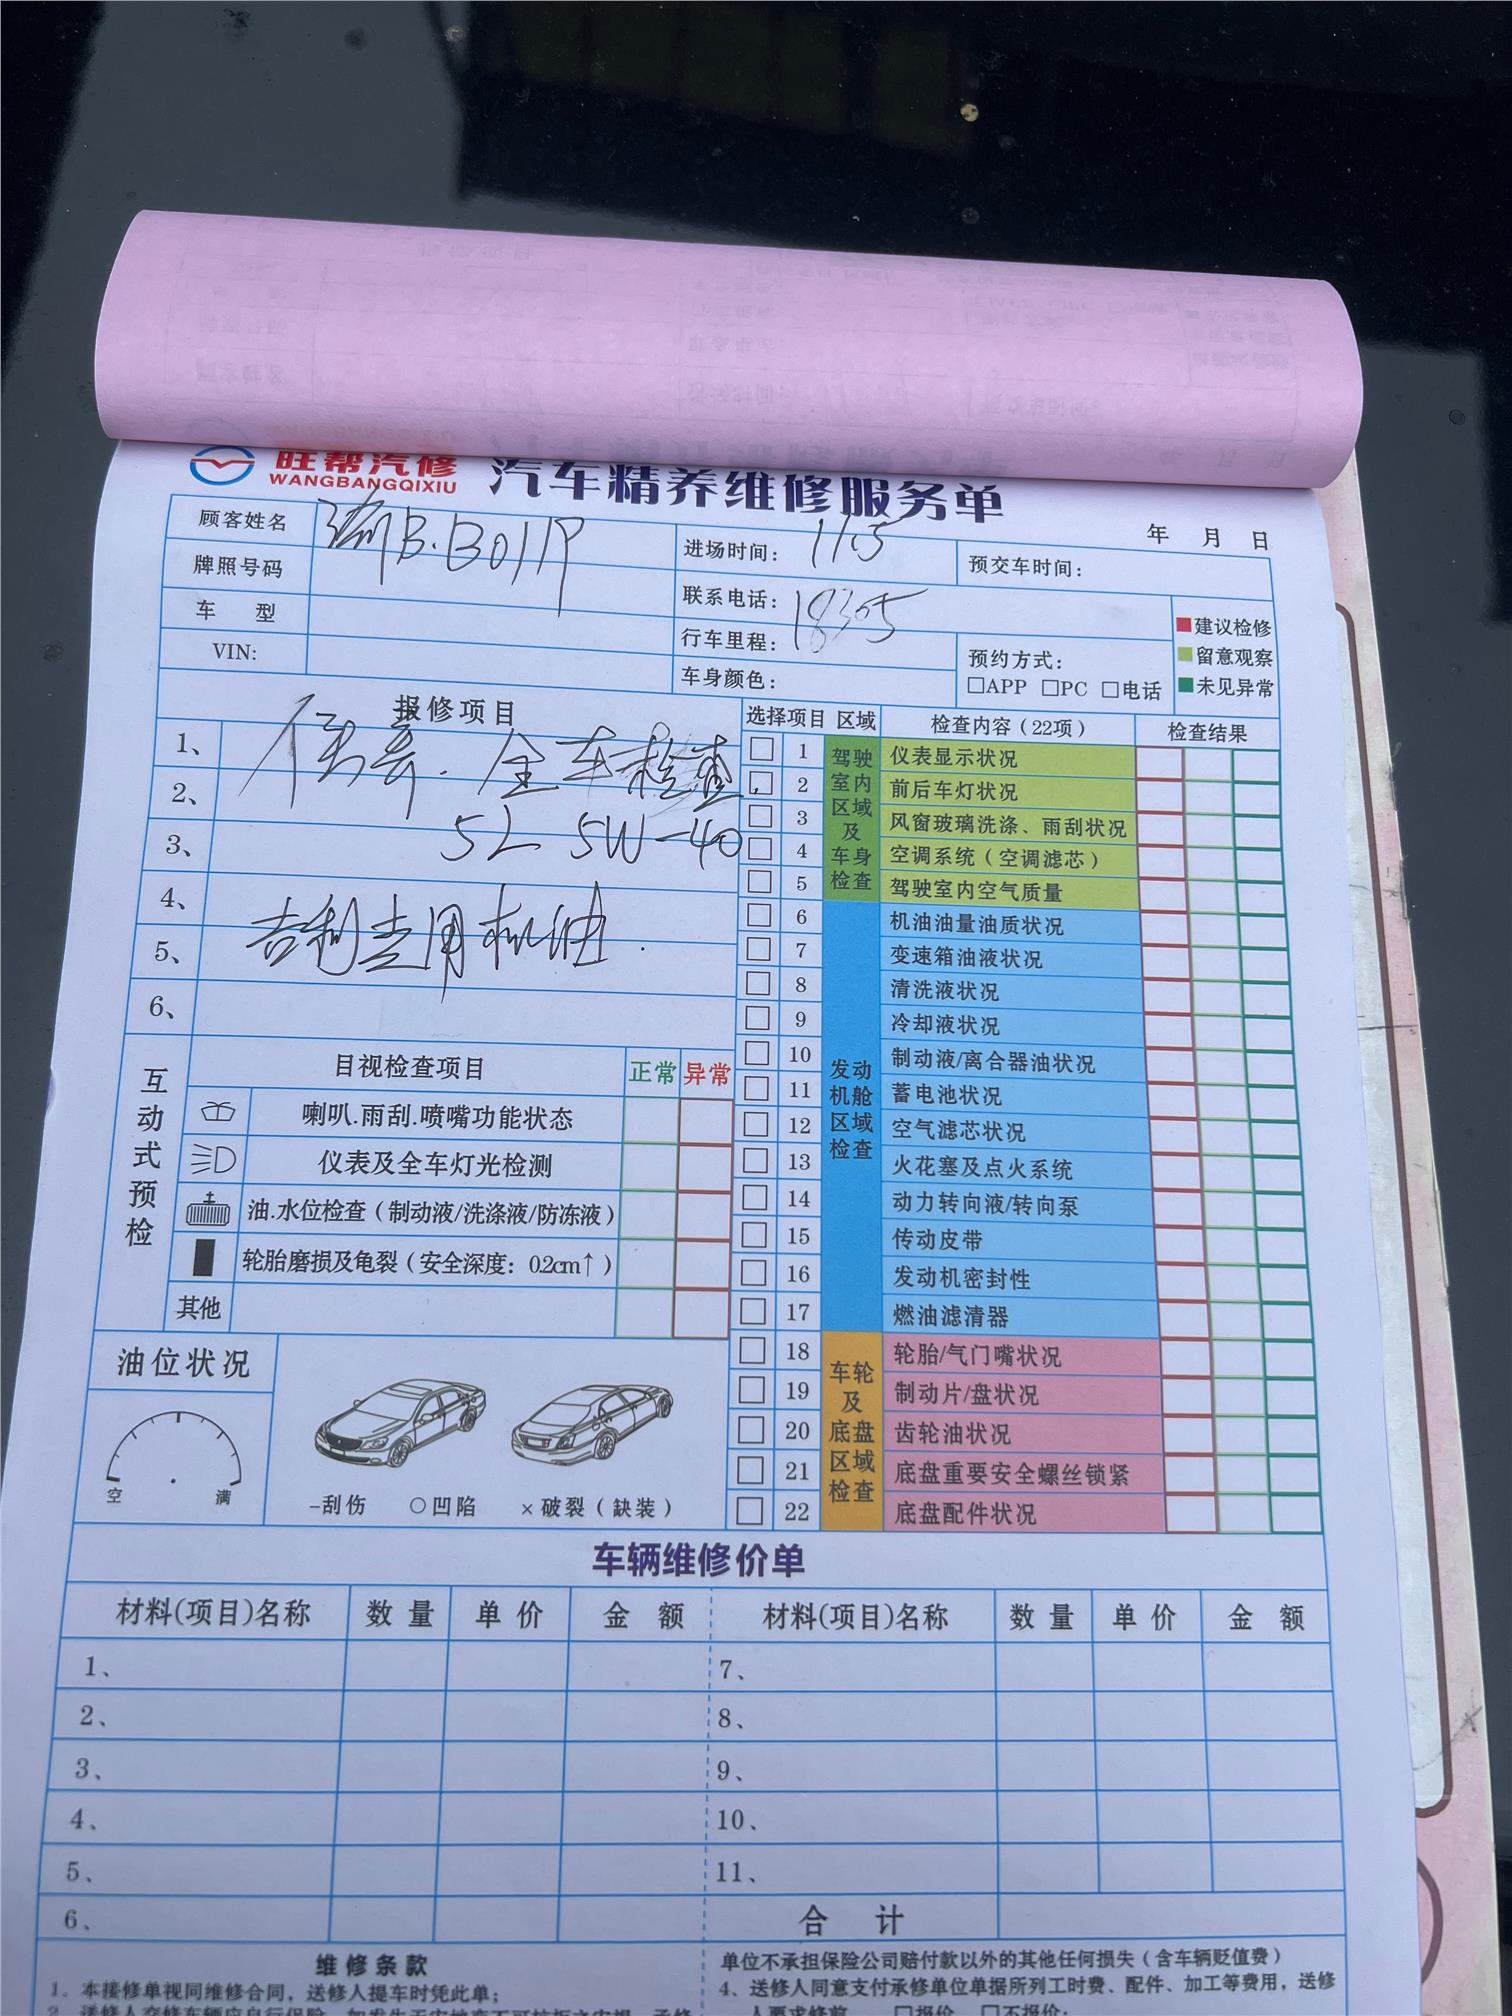 旺帮汽修
WANGBANGQIXIU
汽车精养维修服务单
年 月 日
顾客姓名
渝B.B011P
进场时间： 11.5
预交车时间：
牌照号码
联系电话：
车 型
行车里程： 18305
VIN:
车身颜色：
预约方式：
□APP □PC □电话
建议检修
留意观察
未见异常
报修项目
1、 保养. 全车检查.
2、
3、 5L 5W-40
4、
5、 吉利专用机油.
6、
选择项目 区域 检查内容（22项） 检查结果
驾驶室内区域及车身检查
1 仪表显示状况
2 前后车灯状况
3 风窗玻璃洗涤、雨刮状况
4 空调系统（空调滤芯）
5 驾驶室内空气质量
发动机舱区域检查
6 机油油量油质状况
7 变速箱油液状况
8 清洗液状况
9 冷却液状况
10 制动液/离合器油状况
11 蓄电池状况
12 空气滤芯状况
13 火花塞及点火系统
14 动力转向液/转向泵
15 传动皮带
16 发动机密封性
17 燃油滤清器
车轮及底盘区域检查
18 轮胎/气门嘴状况
19 制动片/盘状况
20 齿轮油状况
21 底盘重要安全螺丝锁紧
22 底盘配件状况
互动式预检
目视检查项目 正常 异常
喇叭.雨刮.喷嘴功能状态
仪表及全车灯光检测
油.水位检查（制动液/洗涤液/防冻液）
轮胎磨损及龟裂（安全深度：0.2cm↑）
其他
油位状况
空 满
-刮伤 ○凹陷 ×破裂（缺装）
车辆维修价单
材料(项目)名称 数量 单价 金额 材料(项目)名称 数量 单价 金额
1、 7、
2、 8、
3、 9、
4、 10、
5、 11、
6、 合 计
维修条款
1。本接修单视同维修合同，送修人提车时凭此单；
单位不承担保险公司赔付款以外的其他任何损失（含车辆贬值费）
4、送修人同意支付承修单位单据所列工时费、配件、加工等费用，送修